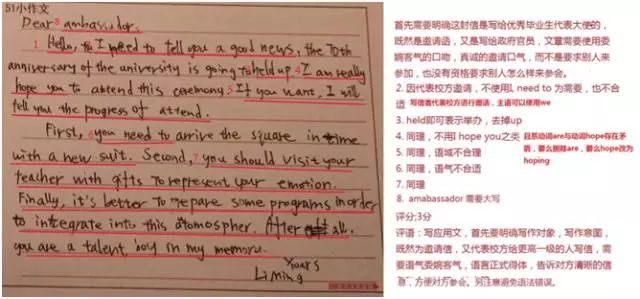 51小作文
Dear 8 ambassador.
1 Hello, to I need to tell you a good news, the 70th
anniversary of the university is going to held up. 4 I am really
hope you to attend this ceremony. 5 If you want, I will
tell you the progress of attend.
First, 6 you need to arrive the square in time
with a new suit. Second, 7 you should visit your
teacher with gifts to represent your emotion.
Finally, it's better to repare some programs in order
to integrate into this atomospher. After all.
you are a talent boy in my memoru.
Yours
Liming
首先需要明确这封信是写给优秀毕业生代表大使的,
既然是邀请函,又是写给政府官员,文章需要使用委
婉客气的口吻,真诚的邀请口气,而不是要求别人来
参加,也没有资格要求别人怎么样来参会。
2. 因代表校方邀请,不使用I, need to 为需要,也不合
适 写信者代表校方进行邀请,主语可以使用we
3. held即可表示举办,去掉up
4. 同理,不用I hope you之类 且系动词are与动词hope存在矛
盾,要么删除are,要么hope改为
hoping
5. 同理,语域不合理
6. 同理,语气不合适
7. 同理
8. amabassador 需要大写
评分:3分
评语:写应用文,首先要明确写作对象,写作意图,
既然为邀请信,又代表校方给更高一级的人写信,需
要语气委婉客气,语言正式得体,告诉对方清晰的信
息,方便对方参会。另注意避免语法错误。